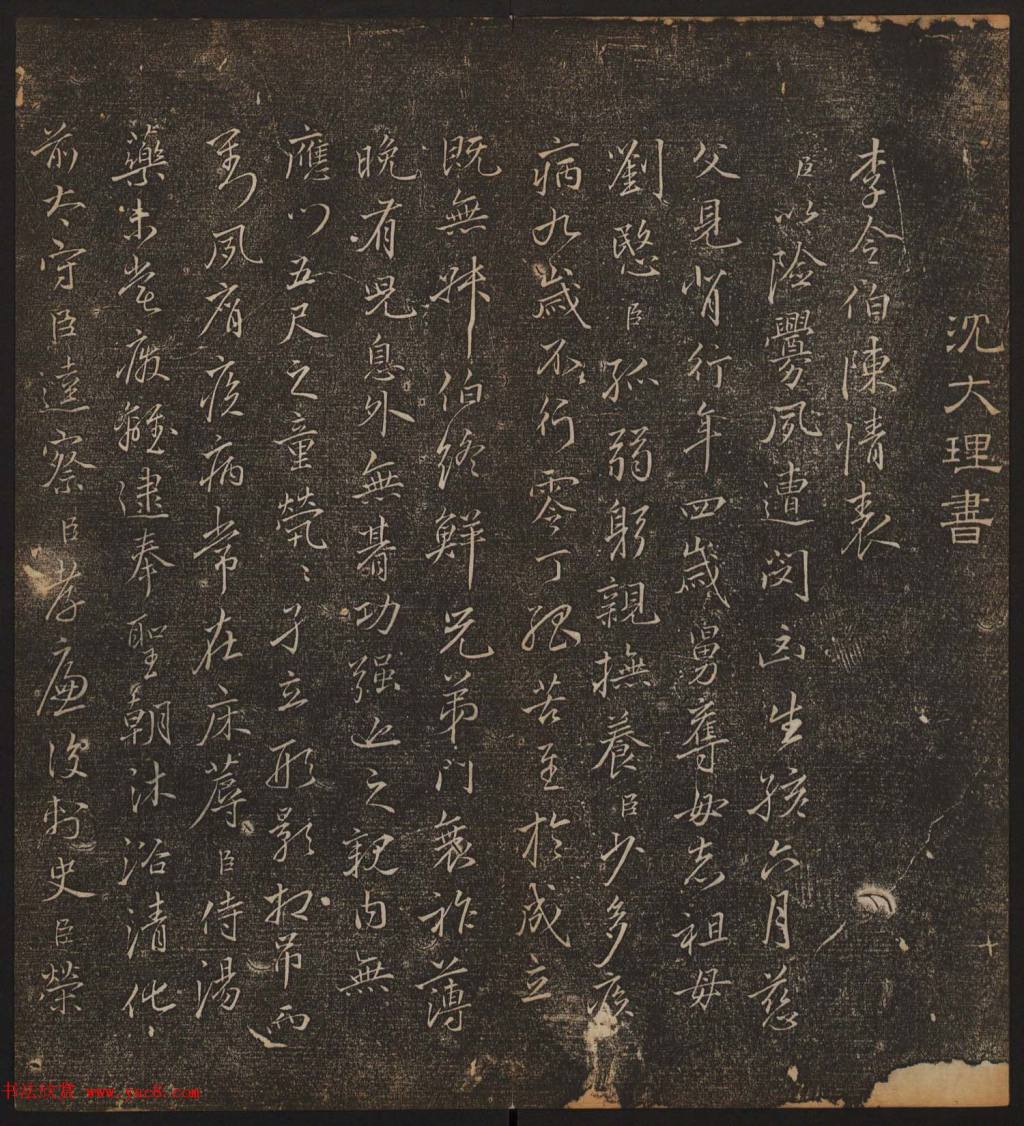 沈大理書
李令伯陳情表
臣以險釁夙遭閔凶生孩六月慈
父見背行年四歲舅奪母志祖母
劉愍臣孤弱躬親撫養臣少多疾
病九歲不行零丁孤苦至於成立
既無叔伯終鮮兄弟門衰祚薄
晚有兒息外無朞功强近之親內無
應門五尺之童煢〻孑立形影相吊而
劉夙有疾病常在床蓐臣侍湯
藥未嘗廢離逮奉聖朝沐浴清化
前太守臣逵察臣孝廉後刺史臣榮
书法欣赏 www.yac8.com